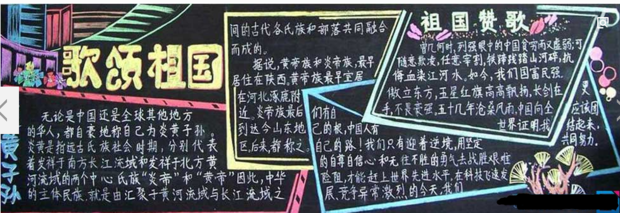 歌颂祖国
黄子孙
无论是中国还是全球其他地方
的华人,都自豪地称自己为炎黄子孙。
炎黄是指远古氏族社会时期,分别代表
着发祥于南方长江流域和发祥于北方黄
河流域的两个中心氏族“炎帝”和“黄帝”因此,中华
的主体民族,就是由汇聚于黄河流域与长江流域之
间的古代各氏族和部落共同融合
而成的。
据说,黄帝族和炎帝族,最早
居住在陕西,黄帝族最早定居
在河北涿鹿附
近,炎帝族最后
到达今山东地
区后来都称之
祖国赞歌
曾几何时,列强眼中的中国贫穷而又虚弱;可
随意欺凌,任意宰割,铁蹄践踏山河碎,抗
侮血染江河水。如今,我们国富民强,
傲立东方,五星红旗高高飘扬,长剑在
手,不畏豪强,五十几年沧桑风雨,中国向全
世界证明,我
们有自
己的根,中国人有
自己的路!我们只有迎着逆境,用坚定
的自尊自信心和无往不胜的勇气去战胜艰难
险阻,才能赶上世界先进水平,在科技飞速发
展,竞争异常激烈的今天,我们
更
应该团
结起来,
共同努力。